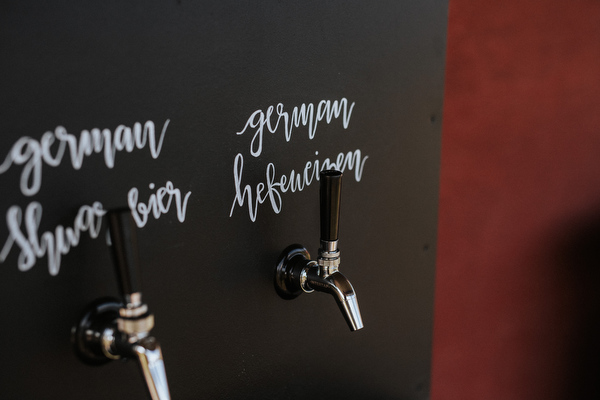 german
Shwa bier
german
hefeweizen